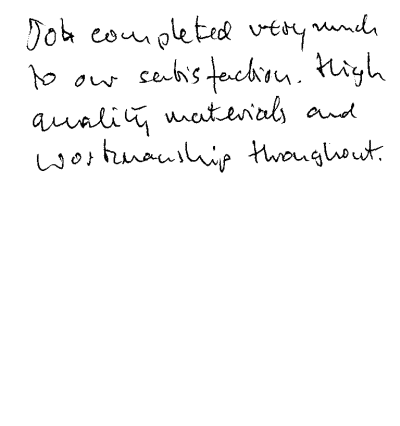 Job completed very much
to our satisfaction. High
quality materials and
workmanship throughout.